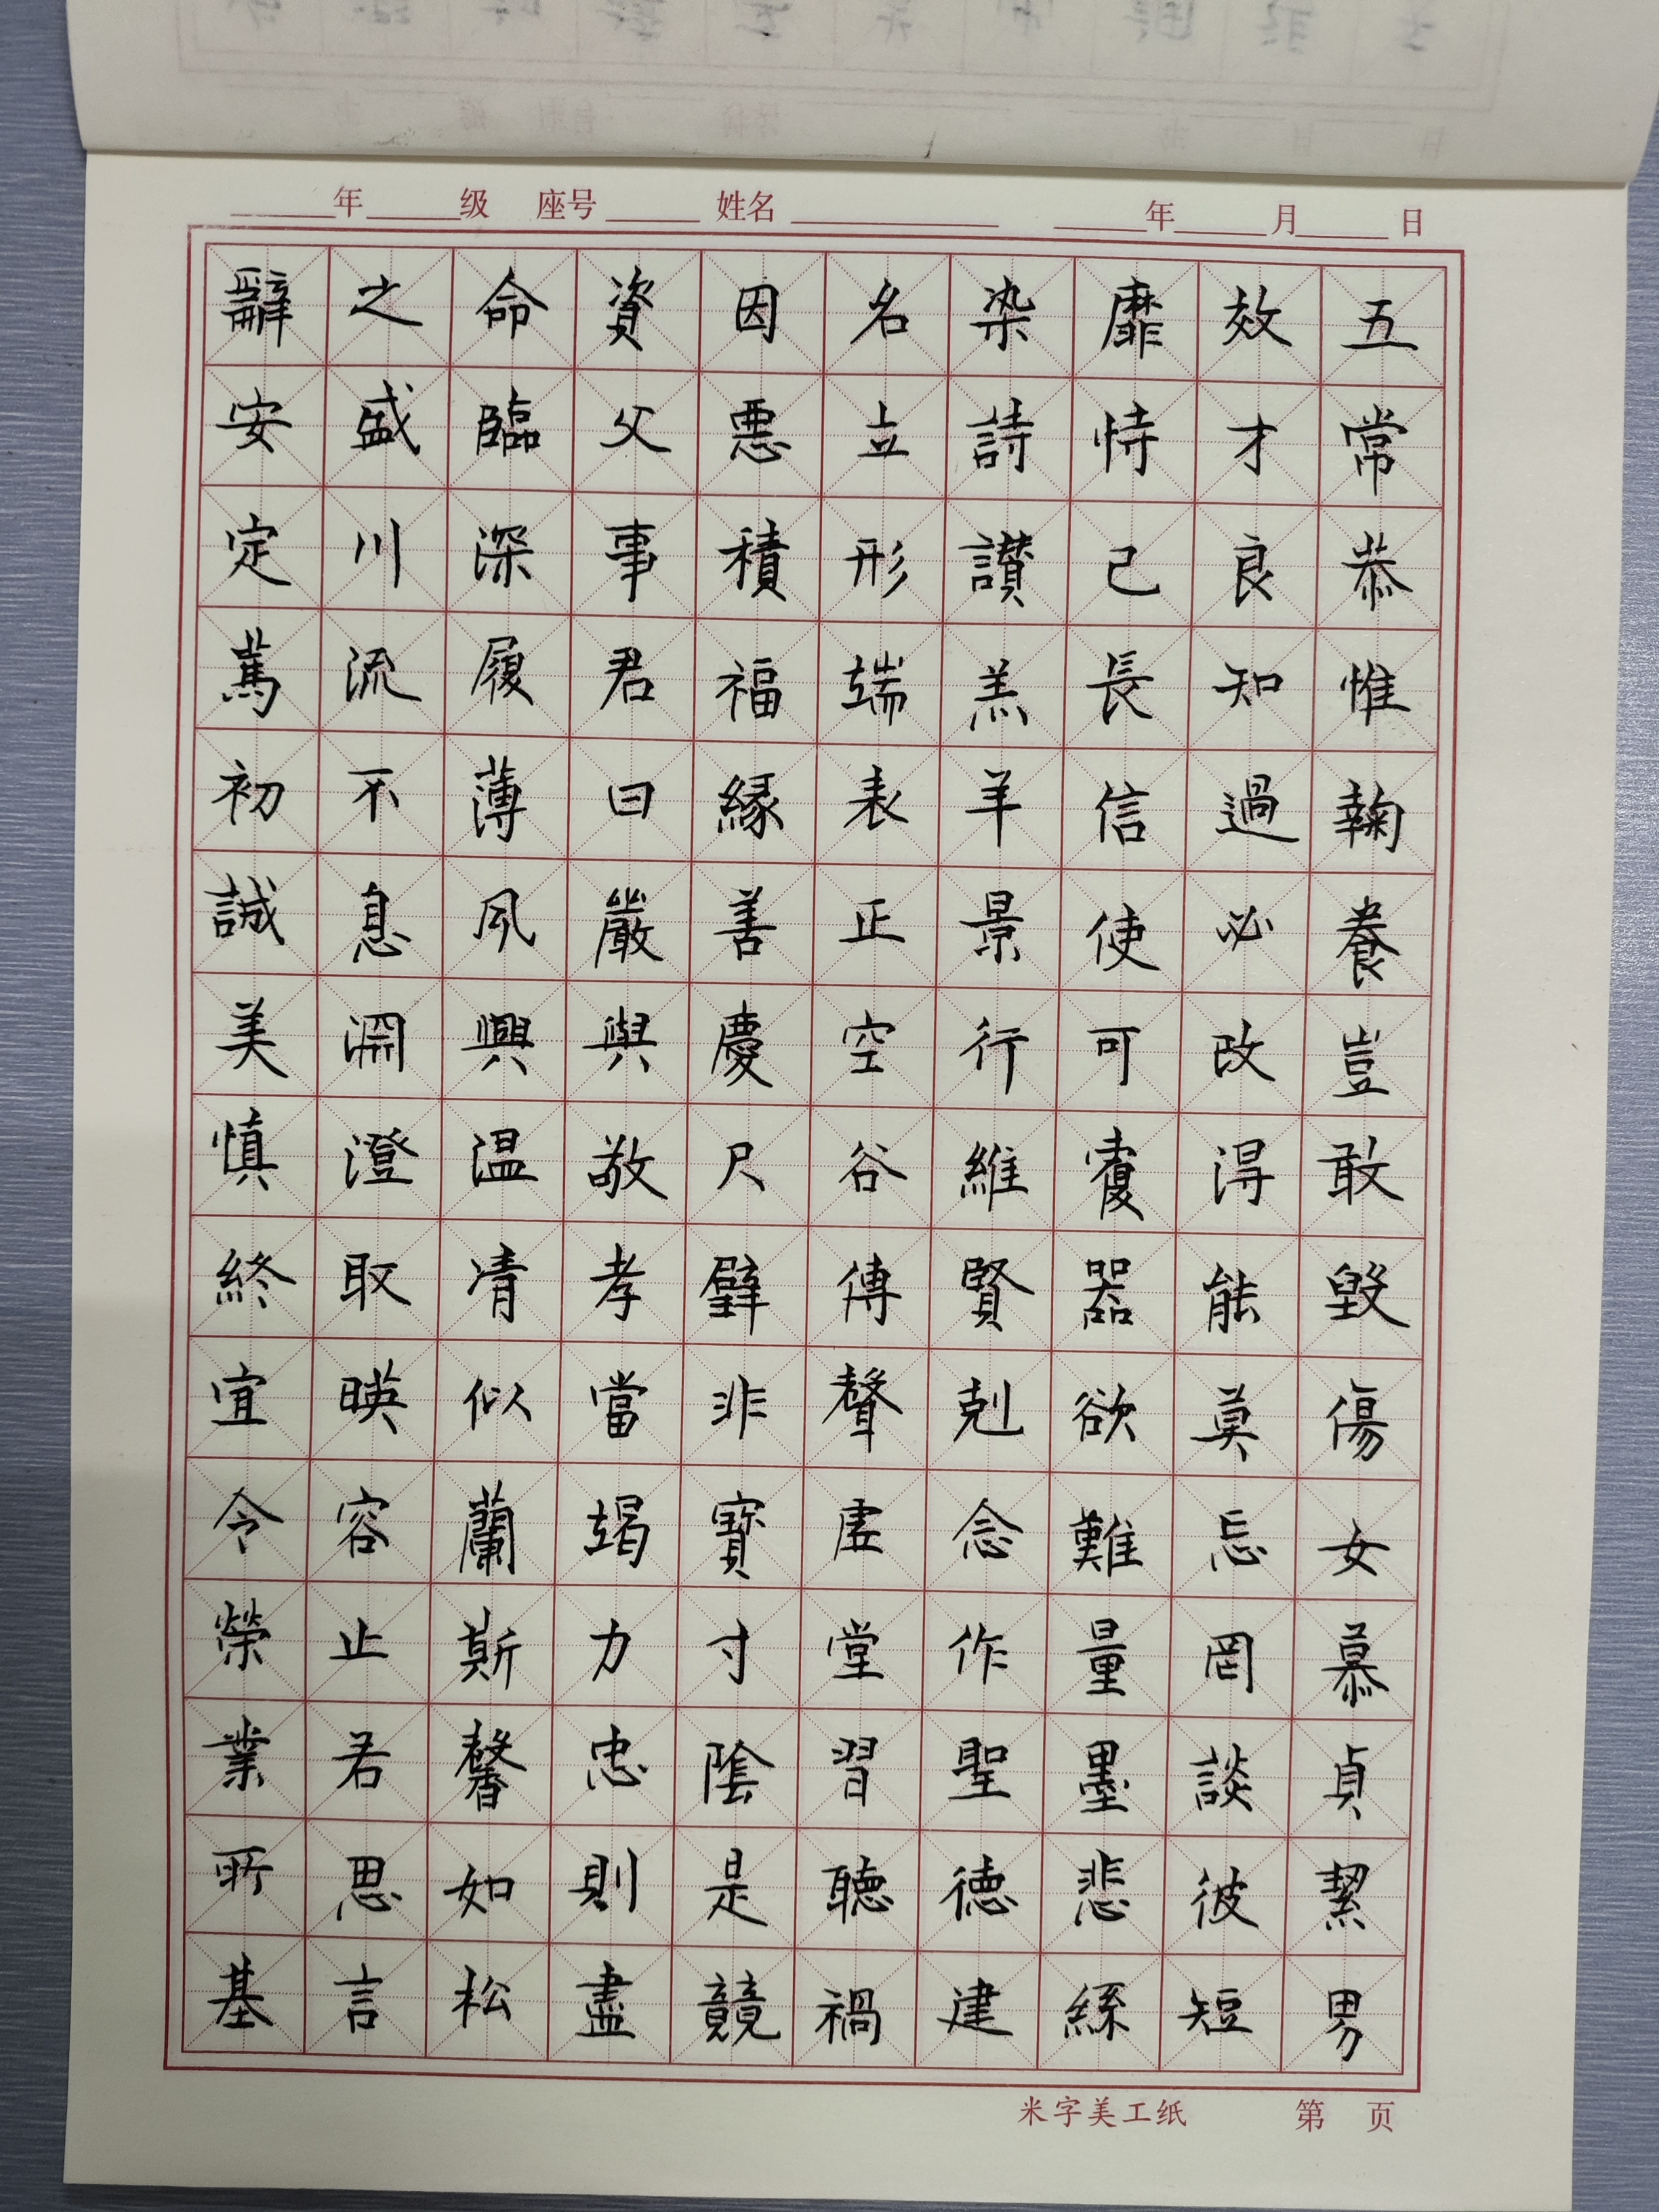 年 级 座号 姓名 年 月 日
五常恭惟鞠養豈敢毀傷女慕貞絜男
效才良知過必改得能莫忘罔談彼短
靡恃己長信使可覆器欲難量墨悲絲
染詩讃羔羊景行維賢剋念作聖德建
名立形端表正空谷傳聲虛堂習聽禍
因惡積福緣善慶尺璧非寶寸陰是競
資父事君曰嚴與敬孝當竭力忠則盡
命臨深履薄夙興温凊似蘭斯馨如松
之盛川流不息淵澄取暎容止若思言
辭安定篤初誠美慎終宜令榮業所基
米字美工纸 第 页